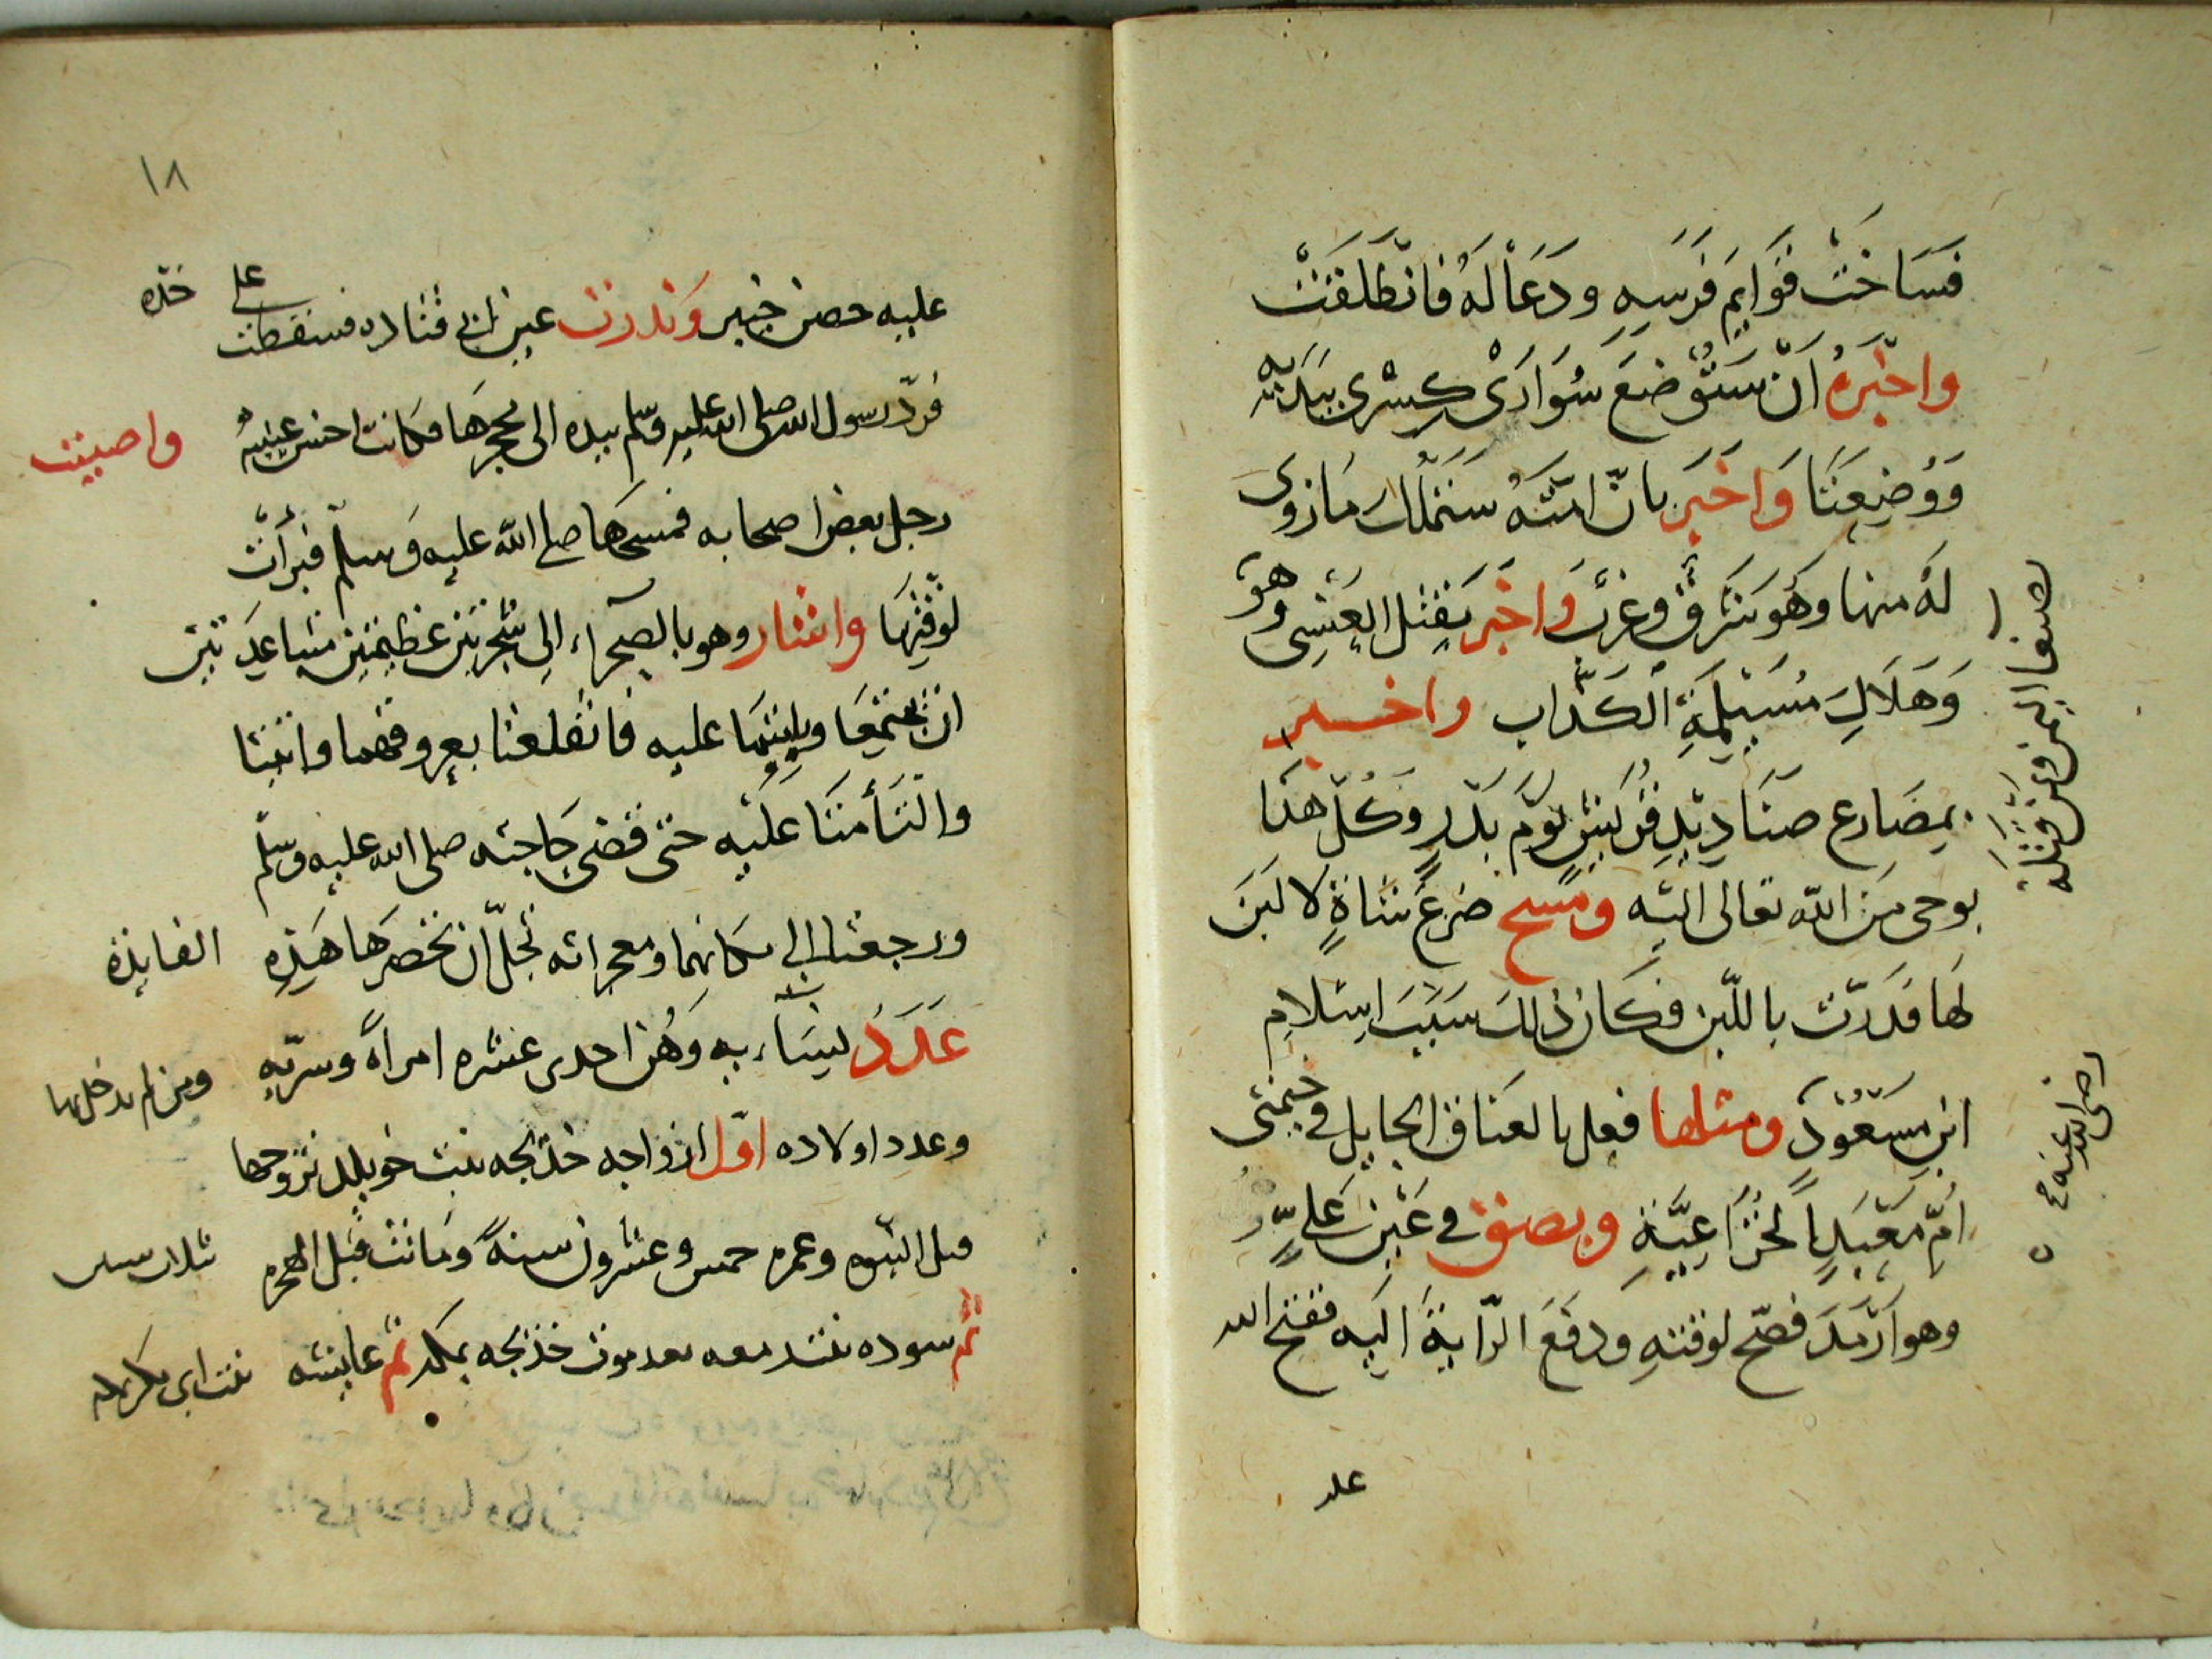 فَسَاخَتْ قَوَايِمَ فَرَسِهِ وَدَعَا لَهُ فَانْطَلَقَتْ
واخبَرهُ اَنْ سَتُوضَعَ سُوَارَىْ كِسْرى بِيَدَيْهِ
وَوُضِعَتَا وَاَخبَرَ بانّ امّتَهُ سَتَمْلك مَا زُوِىَ
لَهُ منها وهُو مَشْرِقٌ وغرْبٌ وَاخْبَر بقتل العَنْسِى وهُوَ
بصنعا اليمن ومن قتله
وَهَلَاكِ مُسَيْلِمَةِ الكَذَّاب واخبر
بمصَارع صنَاديْدِ قُرَيْشٍ يَوْمَ بَدْرٍ وكلّ هذا
بوحى مِنَ الله تعالى اليْهِ ومَسح ضرعَ شاةٍ لا لبَنَ
لَهَا فَدَرّت باللّبن فكان ذلك سَبَبَ اسْلامِ
ابن مَسْعُودٍ ومثلها فعل بالعنَاق الحايل في خيمتى
رضى الله عنه
اُمّ مَعْبَدٍ الخُزَاعِيَّةِ وبصق في عَيْن عَلىٍّ
وهو اَرْمَدَ فصَحّ لوقتهِ ودفَعَ الرّايةَ اليه ففتح الله
عليه
١٨
عليه حصن خيبر وَندرت عين ابى قتاده فسقطت على خدّه
فردّ رسول الله صلى الله عليه وسلم بيده الى محجرها فكانت احسن عينيه واصيبت
رجل بعض اصحابه فمسحَهَا صلى الله عليه وسلم فبرأتْ
لوقْتِهَا واشار وهو بالصحراء الى شجرتين عظيمتين متباعدتين
ان تجتمعَا وياتيَهَا عليه فانقلعتا بعروقهما واتيتا
والتَأمتَا عَلَيْه حتى قضى حَاجته صلى الله عليه وسلم
ورجعتا الى مكانهما ومعجزاته تجلّ ان تحصرها هَذِهِ الفايدة
عَدَدُ نِسَائِهِ وَهُن احدى عشره امرأة وسرّيه ومن لم يدخل بها
وعدد اولاده اوّل ازواجه خدّيجه بنت خويلد تزوجها
قبل النبّوه وعمره خمس وعشرون سنةً ومَاتت قبل الهجره ثلاث سنين
ثم سوده بنت زمعه بعد موت خديجه بمكه ثم عايشه بنت ابى بكر